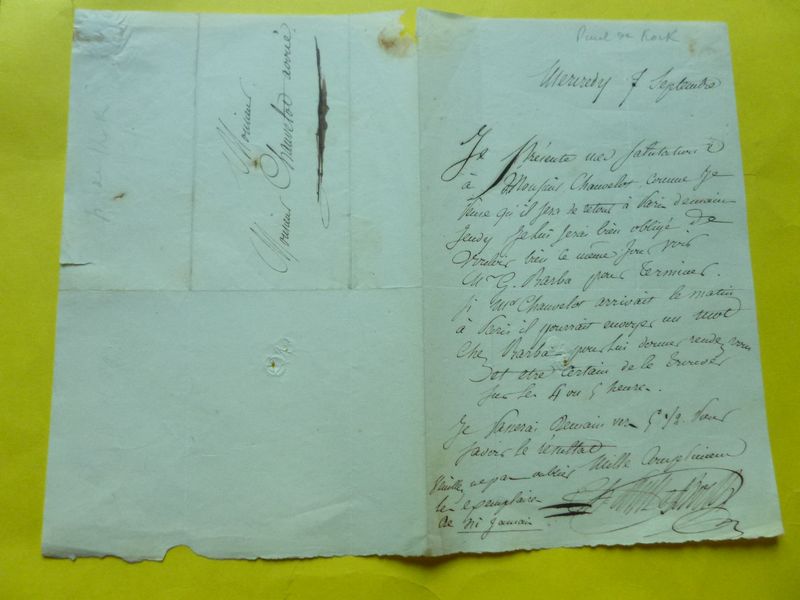 Monsieur
Monsieur Chauvelot avoué
Paul de Kock
Mercredy 7 Septembre
Je Présente mes salutations
à Monsieur Chauvelot, comme je
pense qu'il sera de retour à Paris demain
Jeudy je lui serai bien obligé de
vouloir bien le même jour voir
Mr G. Barba pour terminer.
Si Mr Chauvelot arrivait le matin
à Paris il pourrait envoyer un mot
chez Barba pour lui donner rendez vous
et etre certain de le trouver
sur les 4 ou 5 heures.
Je passerai Demain vers 5h 1/2 pour
savoir le résultat
Mille Compliments
Veuillez ne pas oublier
les exemplaires
de Ni Jamais